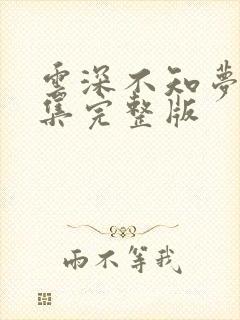 雲深不知夢
集完整版
雨不等我